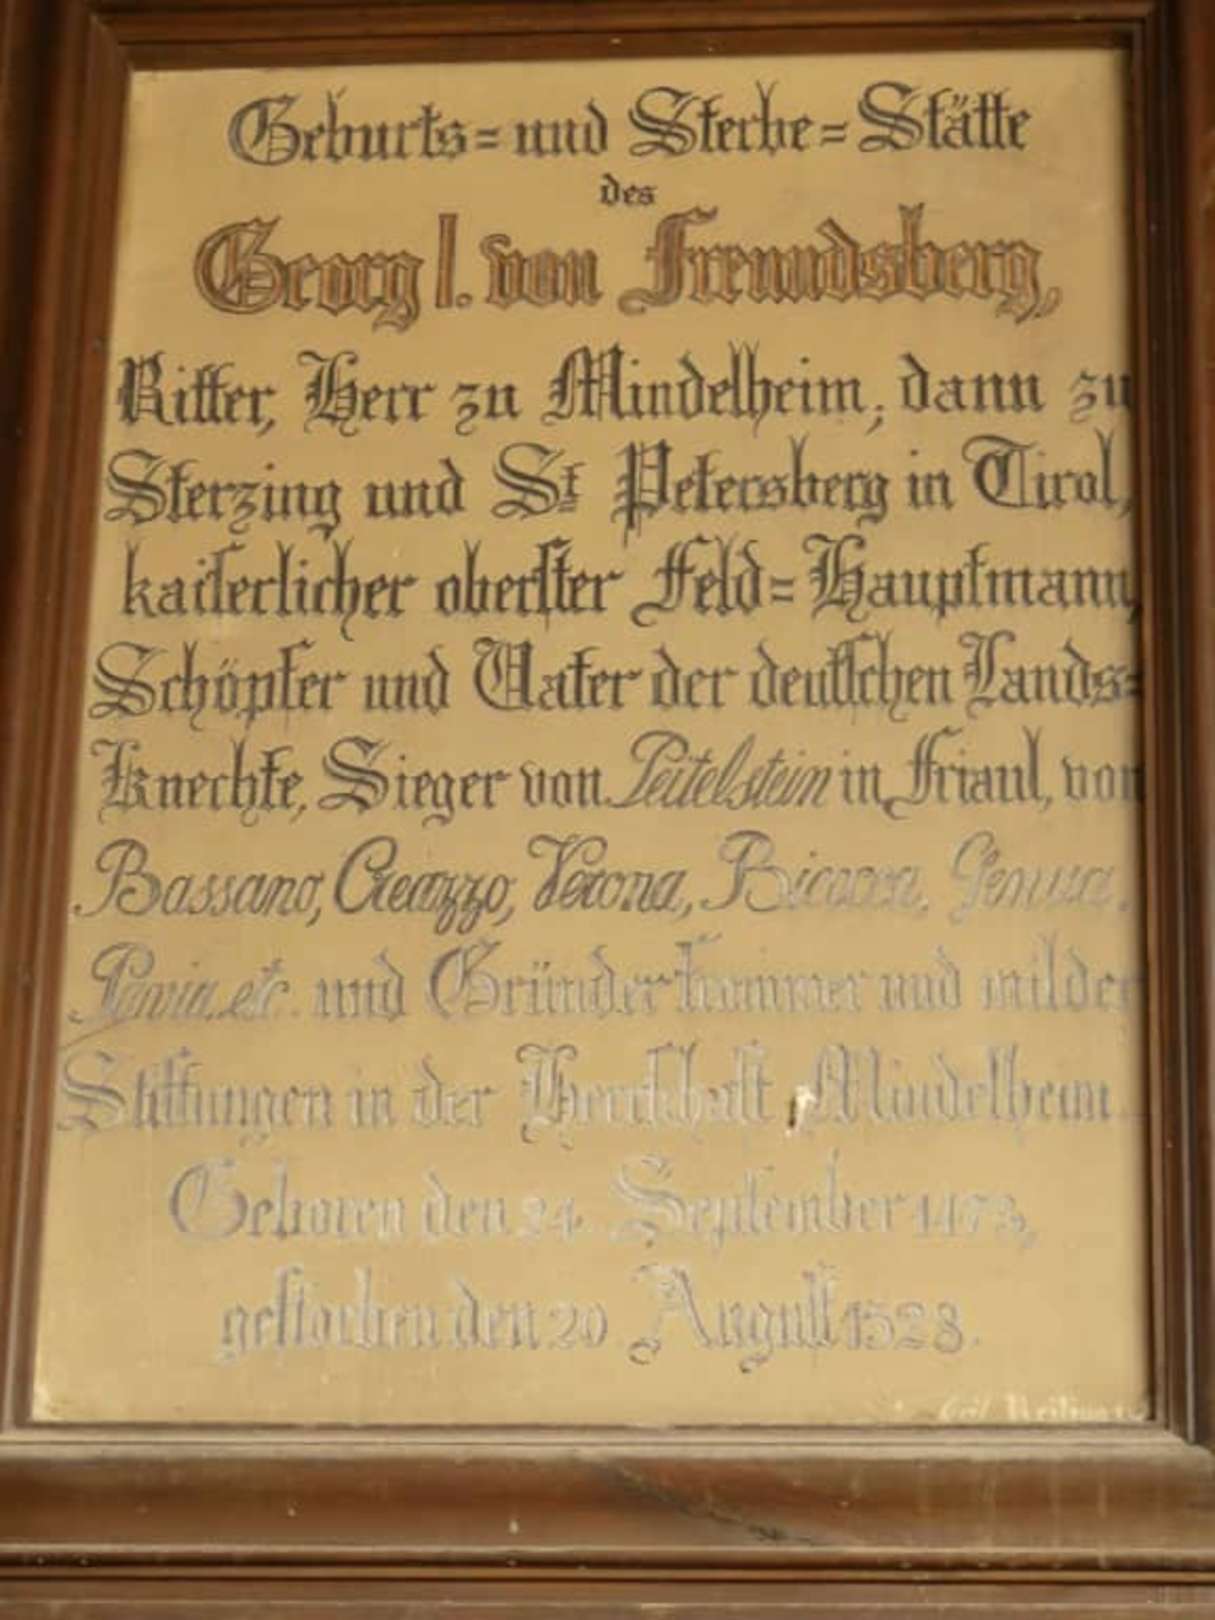 Geburts= und Sterbe=Stätte
des
Georg I. von Freundsberg,
Ritter, Herr zu Mindelheim, dann zu
Sterzing und St. Petersberg in Tirol,
kaiserlicher oberster Feld=Hauptmann,
Schöpfer und Vater der deutschen Lands=
Knechte, Sieger von Peitelstein in Friaul, von
Bassano, Creazzo, Verona, Bicocca, Genua,
Pavia, etc. und Gründer frommer und milder
Stiftungen in der Herrschaft Mindelheim.
Geboren den 24. September 1473,
gestorben den 20. August 1528.